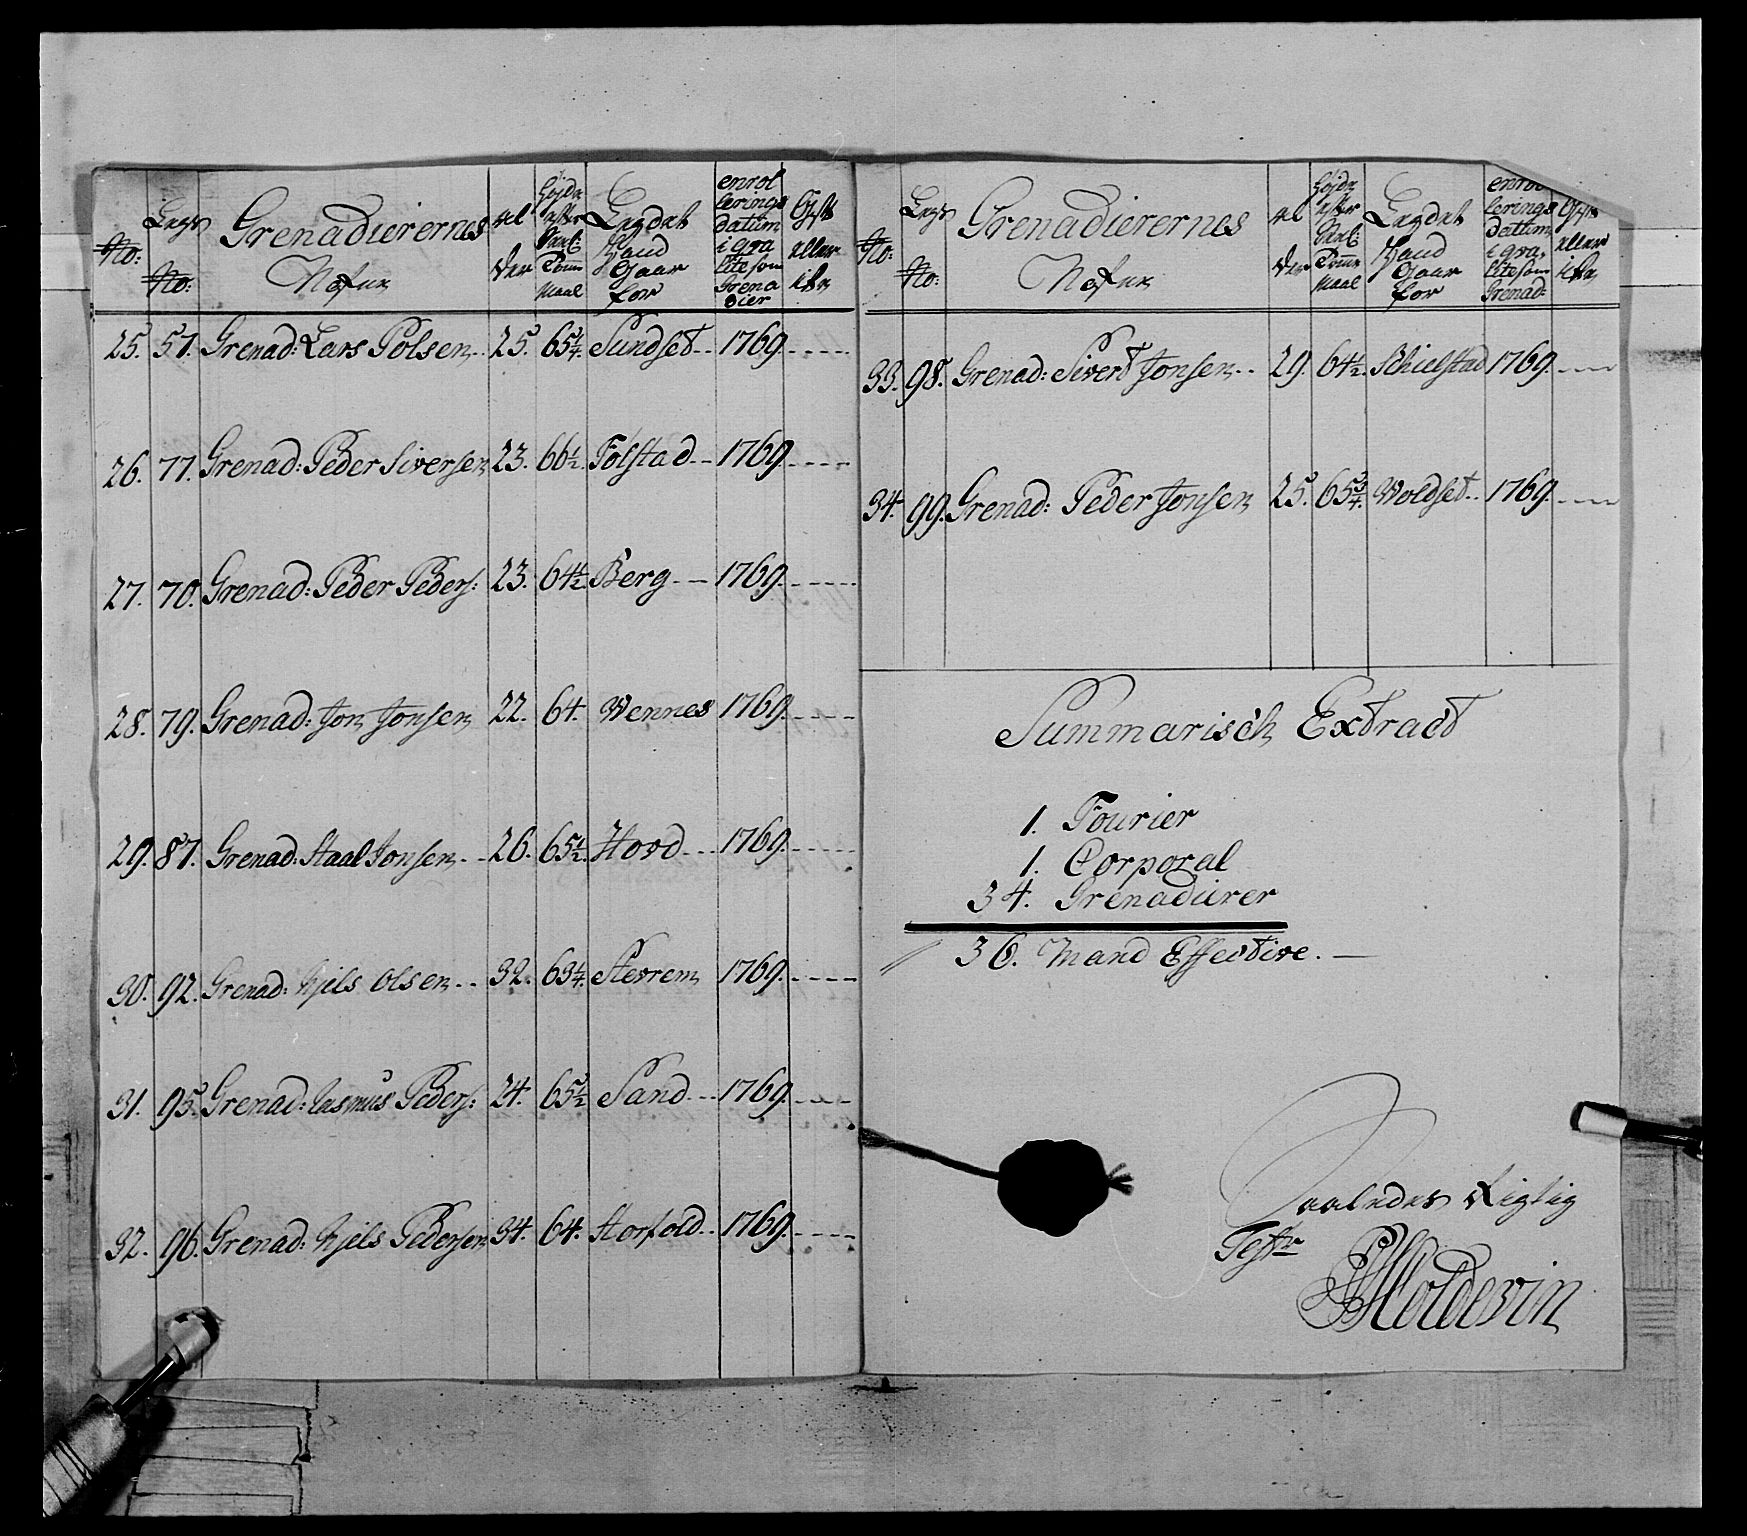 No: Legs No: Grenadierernes Nafne al der Højde efter Tomme Maal Legdet Hand Gaar for enrol lerings datum i qva litet som Grena dier Gift eller ikke
25. 57. Grenad: Lars Polsen 25. 65 1/4. Sundset 1769.
26. 77. Grenad: Peder Siversen 23. 66 1/2. Folstad 1769.
27. 70. Grenad: Peder Peders: 23. 64 1/2 Berg 1769.
28. 79. Grenad: Jon Jonsen 22. 64. Wennes 1769.
29. 87. Grenad: Staal Jonsen 26. 65 1/2. Hovd 1769.
30. 92. Grenad: Njels Olsen 32. 63 1/4. 1769.
31. 95. Grenad: Rasmus Peders: 24. 65 1/2 Sand 1769.
32. 96. Grenad: Njels Pedersen 34. 64. Storfold 1769.
No: Legs No: Grenadierernes Nafne al der Højde efter Tomme Maal Legdet Hand Gaar for enrol lerings dattum i qva, litet som Grenad: Gift eller ikke
33. 98. Grenad: Sivert Jonsen 29. 64 1/2. Schielstad 1769.
34. 99. Grenad: Peder Jonsen 25. 65 3/4. Woldset 1769.
Summarisch Extract
1. Fourier
1. Corporal
34. Grenadierer
36. Mand Effective.
Saaledes Rigtig
Holdevin